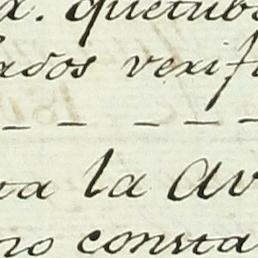 x. quetubo
ados verifi
— — — — —
ta la av
no consta